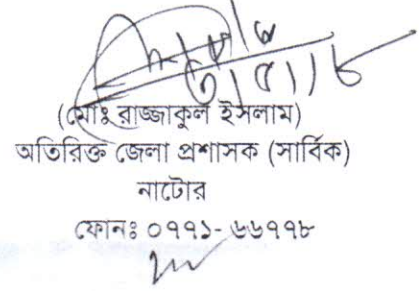 (মোঃ রাজ্জাকুল ইসলাম)
অতিরিক্ত জেলা প্রশাসক (সার্বিক)
নাটোর
ফোনঃ ০৭৭১- ৬৬৭৭৮